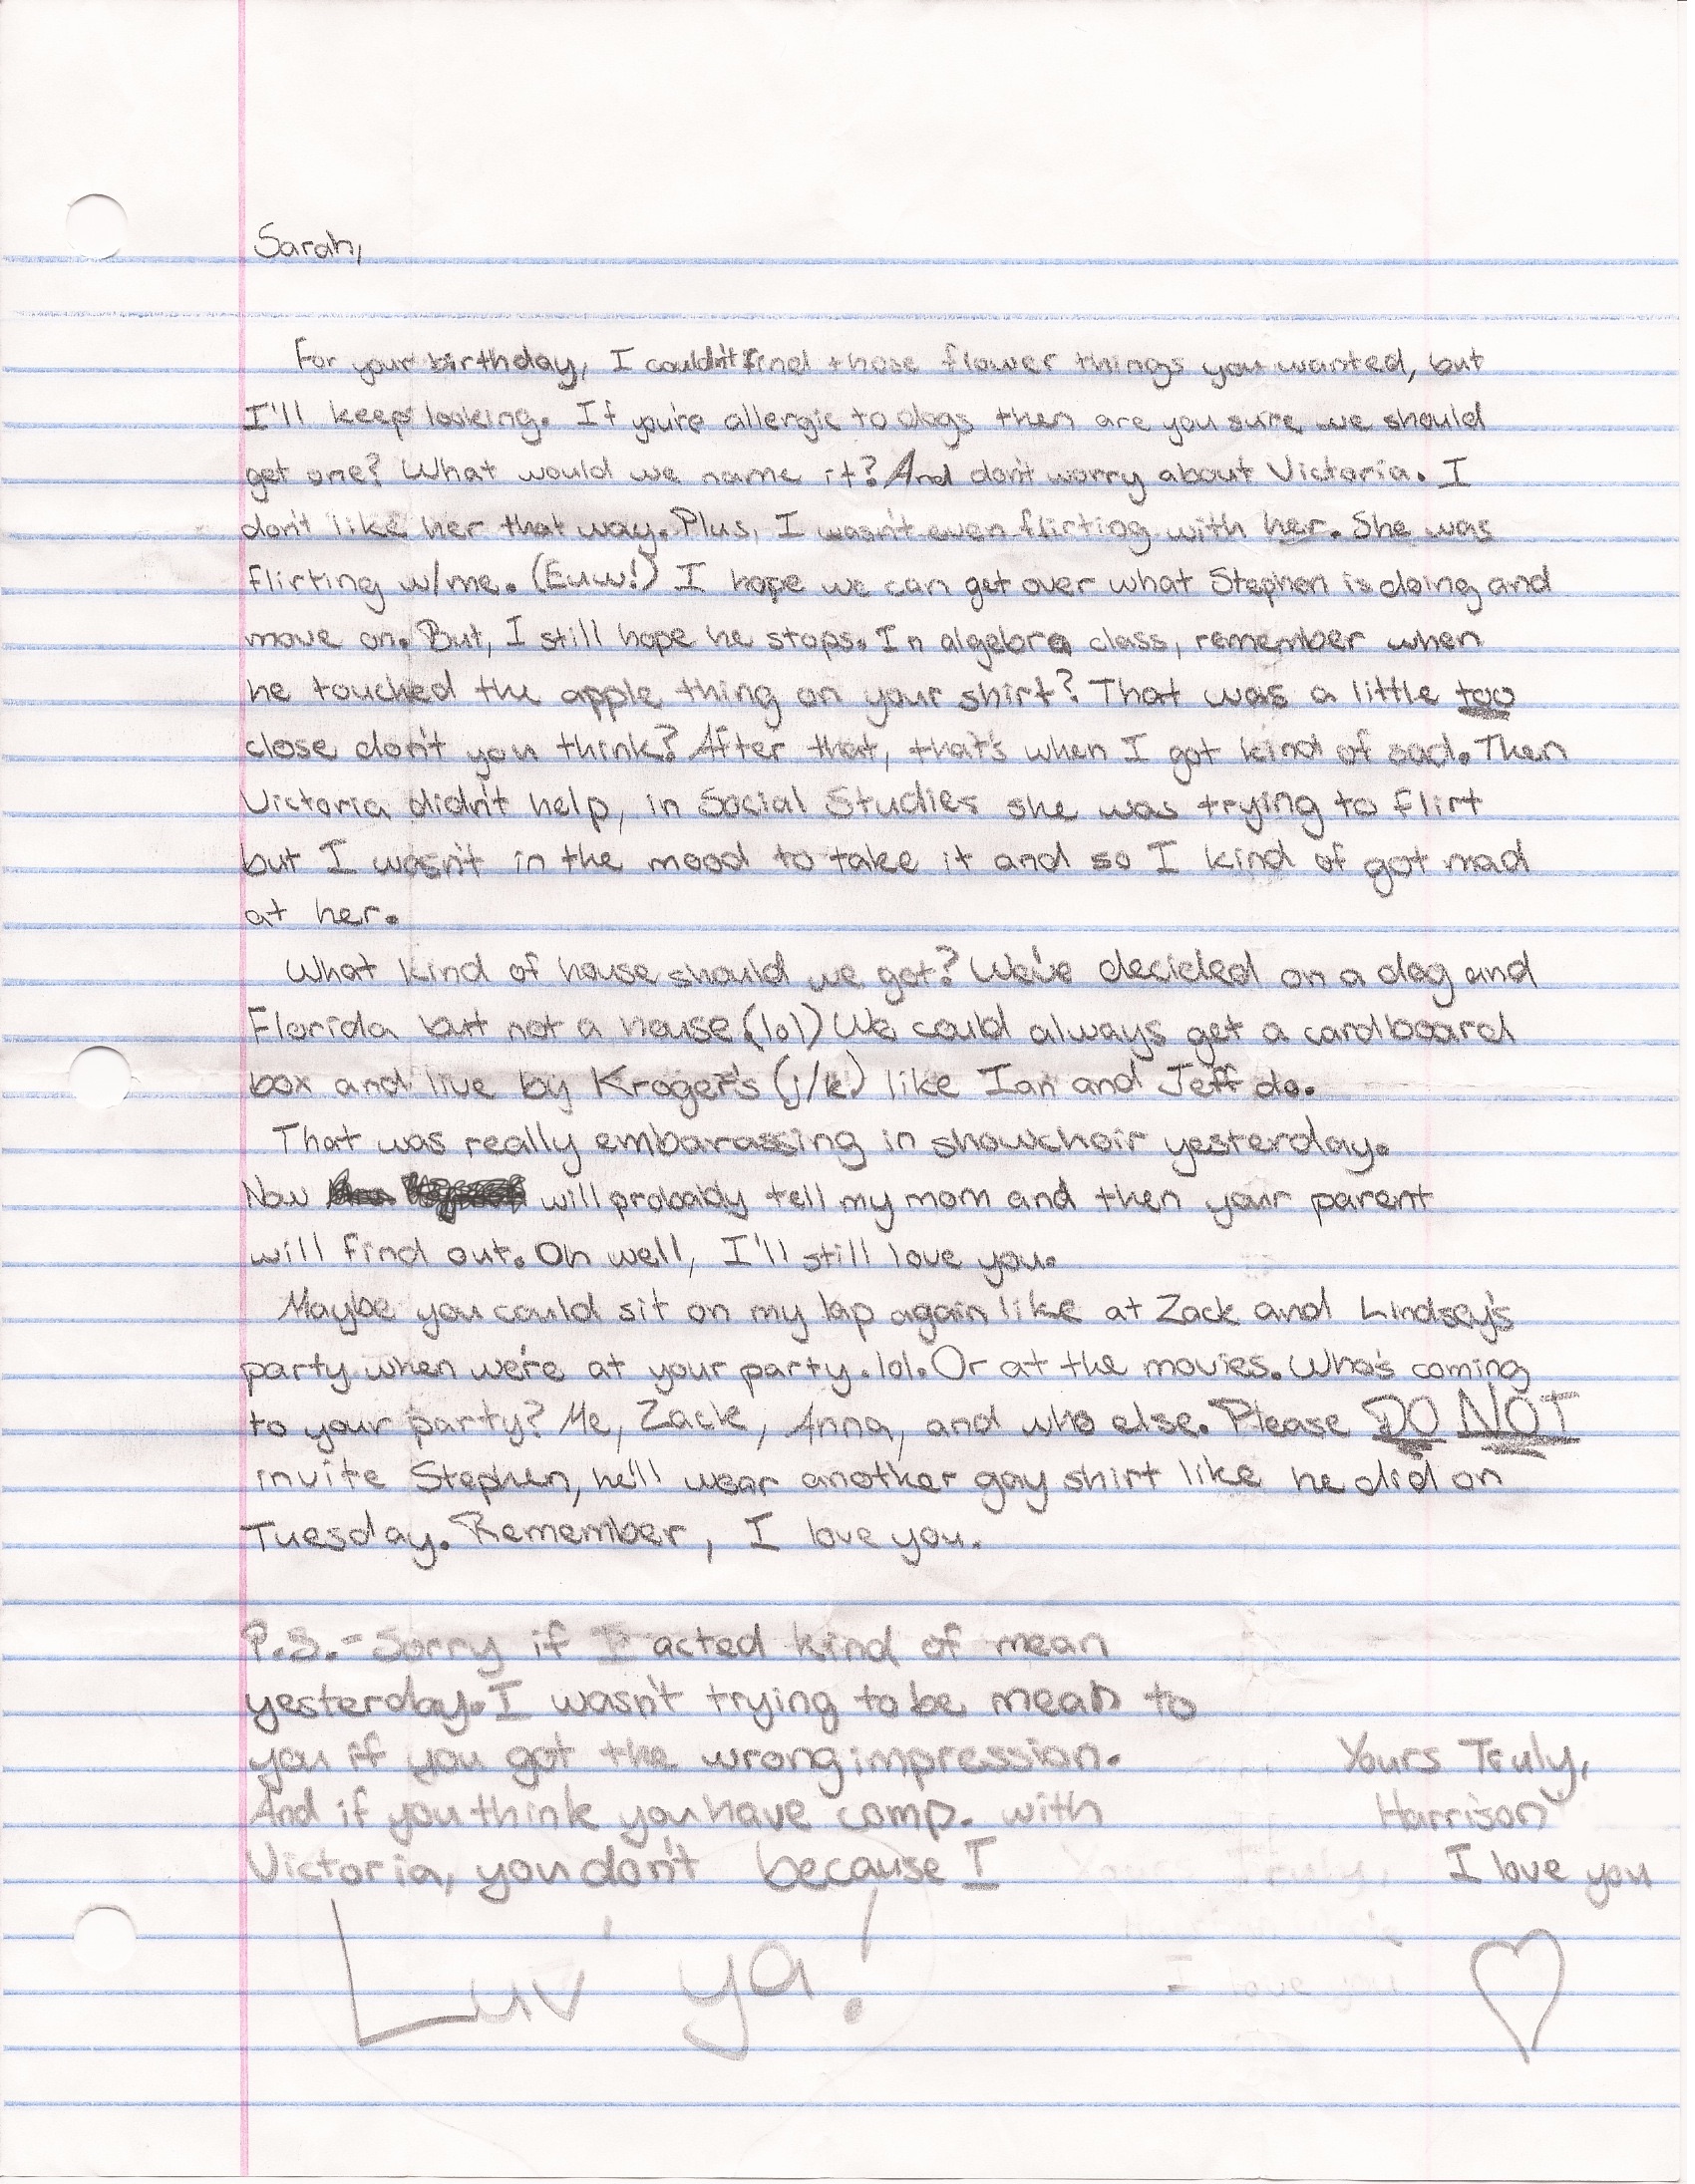 Sarah,
For your birthday, I couldn't find those flower things you wanted, but
I'll keep looking. If you're allergic to dogs then are you sure we should
get one? What would we name it? And don't worry about Victoria. I
don't like her that way. Plus, I wasn't even flirting with her. She was
flirting w/me. (Euw!) I hope we can get over what Stephen is doing and
move on. But, I still hope he stops. In algebra class, remember when
he touched the apple thing on your shirt? That was a little too
close don't you think? After that, that's when I got kind of sad. Then
Victoria didn't help, in Social Studies she was trying to flirt
but I wasn't in the mood to take it and so I kind of got mad
at her.
What kind of house should we get? We've decided on a dog and
Florida but not a house (lol) We could always get a cardboard
box and live by Kroger's (j/k) like Ian and Jeff do.
That was really embarassing in showchoir yesterday.
Now will probably tell my mom and then your parent
will find out. Oh well, I'll still love you.
Maybe you could sit on my lap again like at Zack and Lindsey's
party when we're at your party. lol. Or at the movies. Who's coming
to your party? Me, Zack, Anna, and who else. Please DO NOT
invite Stephen, he'll wear another gay shirt like he did on
Tuesday. Remember, I love you.
P.S.-Sorry if I acted kind of mean
yesterday. I wasn't trying to be mean to
you if you got the wrong impression.
And if you think you have comp. with
Victoria, you don't because I
Luv' ya!
Yours Truly,
Harrison
I love you